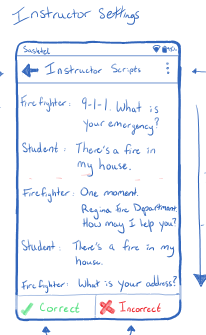 Instructor Settings
Sasktel
Instructor Scripts
Firefighter: 9-1-1. What is
your emergency?
Student: There's a fire in
my house.
Firefighter: One moment.
Regina Fire Department.
How may I help you?
Student: There's a fire in my
house.
Firefighter: What is your address?
Correct
Incorrect